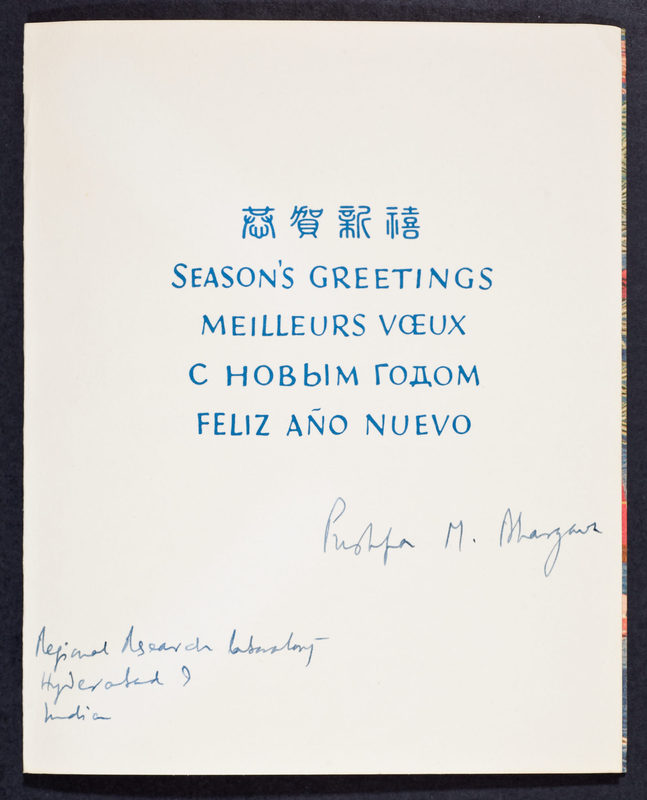 恭賀新禧
SEASON'S GREETINGS
MEILLEURS VŒUX
С НОВЫМ ГОДОМ
FELIZ AÑO NUEVO
Pushpa M. Bhargava
Regional Research Laboratory
Hyderabad 9
India